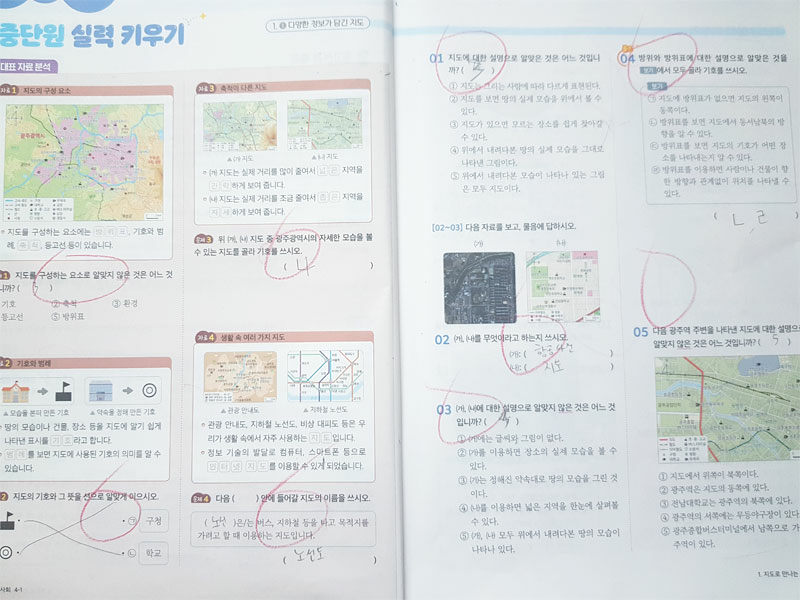 중단원 실력 키우기
1. ❶ 다양한 정보가 담긴 지도
대표 자료 분석
자료 1 지도의 구성 요소
광주광역시
지도를 구성하는 요소에는 방위표, 기호와 범
례, 축척, 등고선 등이 있습니다.
지도를 구성하는 요소로 알맞지 않은 것은 어느 것
니까? ( )
기호 ② 축척 ③ 환경
등고선 ⑤ 방위표
2 기호와 범례
▲ 모습을 본떠 만든 기호 ▲ 약속을 정해 만든 기호
땅의 모습이나 건물, 장소 등을 지도에 알기 쉽게
나타낸 표시를 기호라고 합니다.
범례를 보면 지도에 사용된 기호의 의미를 알 수
있습니다.
2 지도의 기호와 그 뜻을 선으로 알맞게 이으시오.
㉠ 구청
㉡ 학교
사회 4-1
자료 3 축척이 다른 지도
▲ ㈎ 지도 ▲ ㈏ 지도
㈎ 지도는 실제 거리를 많이 줄여서 넓은 지역을
간략하게 보여 줍니다.
㈏ 지도는 실제 거리를 조금 줄여서 좁은 지역을
자세하게 보여 줍니다.
문제 3 위 ㈎, ㈏ 지도 중 광주광역시의 자세한 모습을 볼
수 있는 지도를 골라 기호를 쓰시오.
( 나 )
자료 4 생활 속 여러 가지 지도
▲ 관광 안내도 ▲ 지하철 노선도
관광 안내도, 지하철 노선도, 비상 대피도 등은 우
리가 생활 속에서 자주 사용하는 지도입니다.
정보 기술의 발달로 컴퓨터, 스마트폰 등으로
인터넷 지도를 이용할 수 있게 되었습니다.
문제 4 다음 ( ) 안에 들어갈 지도의 이름을 쓰시오.
( 노선 )은/는 버스, 지하철 등을 타고 목적지를
가려고 할 때 이용하는 지도입니다.
( 노선도 )
01 지도에 대한 설명으로 알맞은 것은 어느 것입니
까? ( )
① 지도는 그리는 사람에 따라 다르게 표현된다.
② 지도를 보면 땅의 실제 모습을 위에서 볼 수
있다.
③ 지도가 있으면 모르는 장소를 쉽게 찾아갈
수 있다.
④ 위에서 내려다본 땅의 실제 모습을 그대로
나타낸 그림이다.
⑤ 위에서 내려다본 모습이 나타나 있는 그림
은 모두 지도이다.
[02~03] 다음 자료를 보고, 물음에 답하시오.
㈎ ㈏
02 ㈎, ㈏를 무엇이라고 하는지 쓰시오.
㈎: ( )
㈏: ( 지도 )
03 ㈎, ㈏에 대한 설명으로 알맞지 않은 것은 어느 것
입니까? ( )
① ㈎에는 글씨와 그림이 없다.
② ㈎를 이용하면 장소의 실제 모습을 볼 수
있다.
③ ㈎는 정해진 약속대로 땅의 모습을 그린 것
이다.
④ ㈏를 이용하면 넓은 지역을 한눈에 살펴볼
수 있다.
⑤ ㈎, ㈏ 모두 위에서 내려다본 땅의 모습이
나타나 있다.
04 방위와 방위표에 대한 설명으로 알맞은 것을
보기 에서 모두 골라 기호를 쓰시오.
보기
㉠ 지도에 방위표가 없으면 지도의 왼쪽이
동쪽이다.
㉡ 방위표를 보면 지도에서 동서남북의 방
향을 알 수 있다.
㉢ 방위표를 보면 지도의 기호가 어떤 장
소를 나타내는지 알 수 있다.
㉣ 방위표를 이용하면 사람이나 건물이 향
한 방향과 관계없이 위치를 나타낼 수
있다.
( ㄴ, ㄹ
05 다음 광주역 주변을 나타낸 지도에 대한 설명으로
알맞지 않은 것은 어느 것입니까? ( 5 )
① 지도에서 위쪽이 북쪽이다.
② 광주역은 지도의 동쪽에 있다.
③ 전남대학교는 광주역의 북쪽에 있다.
④ 광주역의 서쪽에는 무등야구장이 있다.
⑤ 광주종합버스터미널에서 남쪽으로 가
주역이 있다.
1. 지도로 만나는